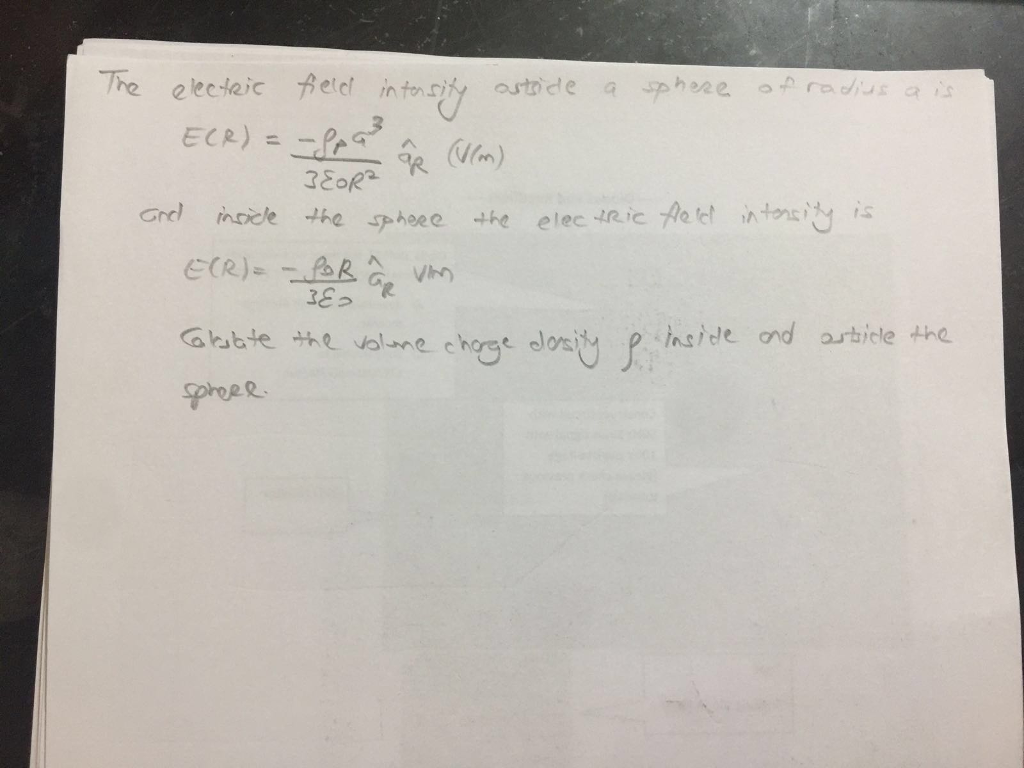 The electric field intensity outside a sphere of radius a is
E(R) = -ρ₀a³ / 3ε₀R² âR (V/m)
and inside the sphere the electric field intensity is
E(R) = -ρ₀R / 3ε₀ âR V/m
Calculate the volume charge density ρ inside and outside the
sphere.